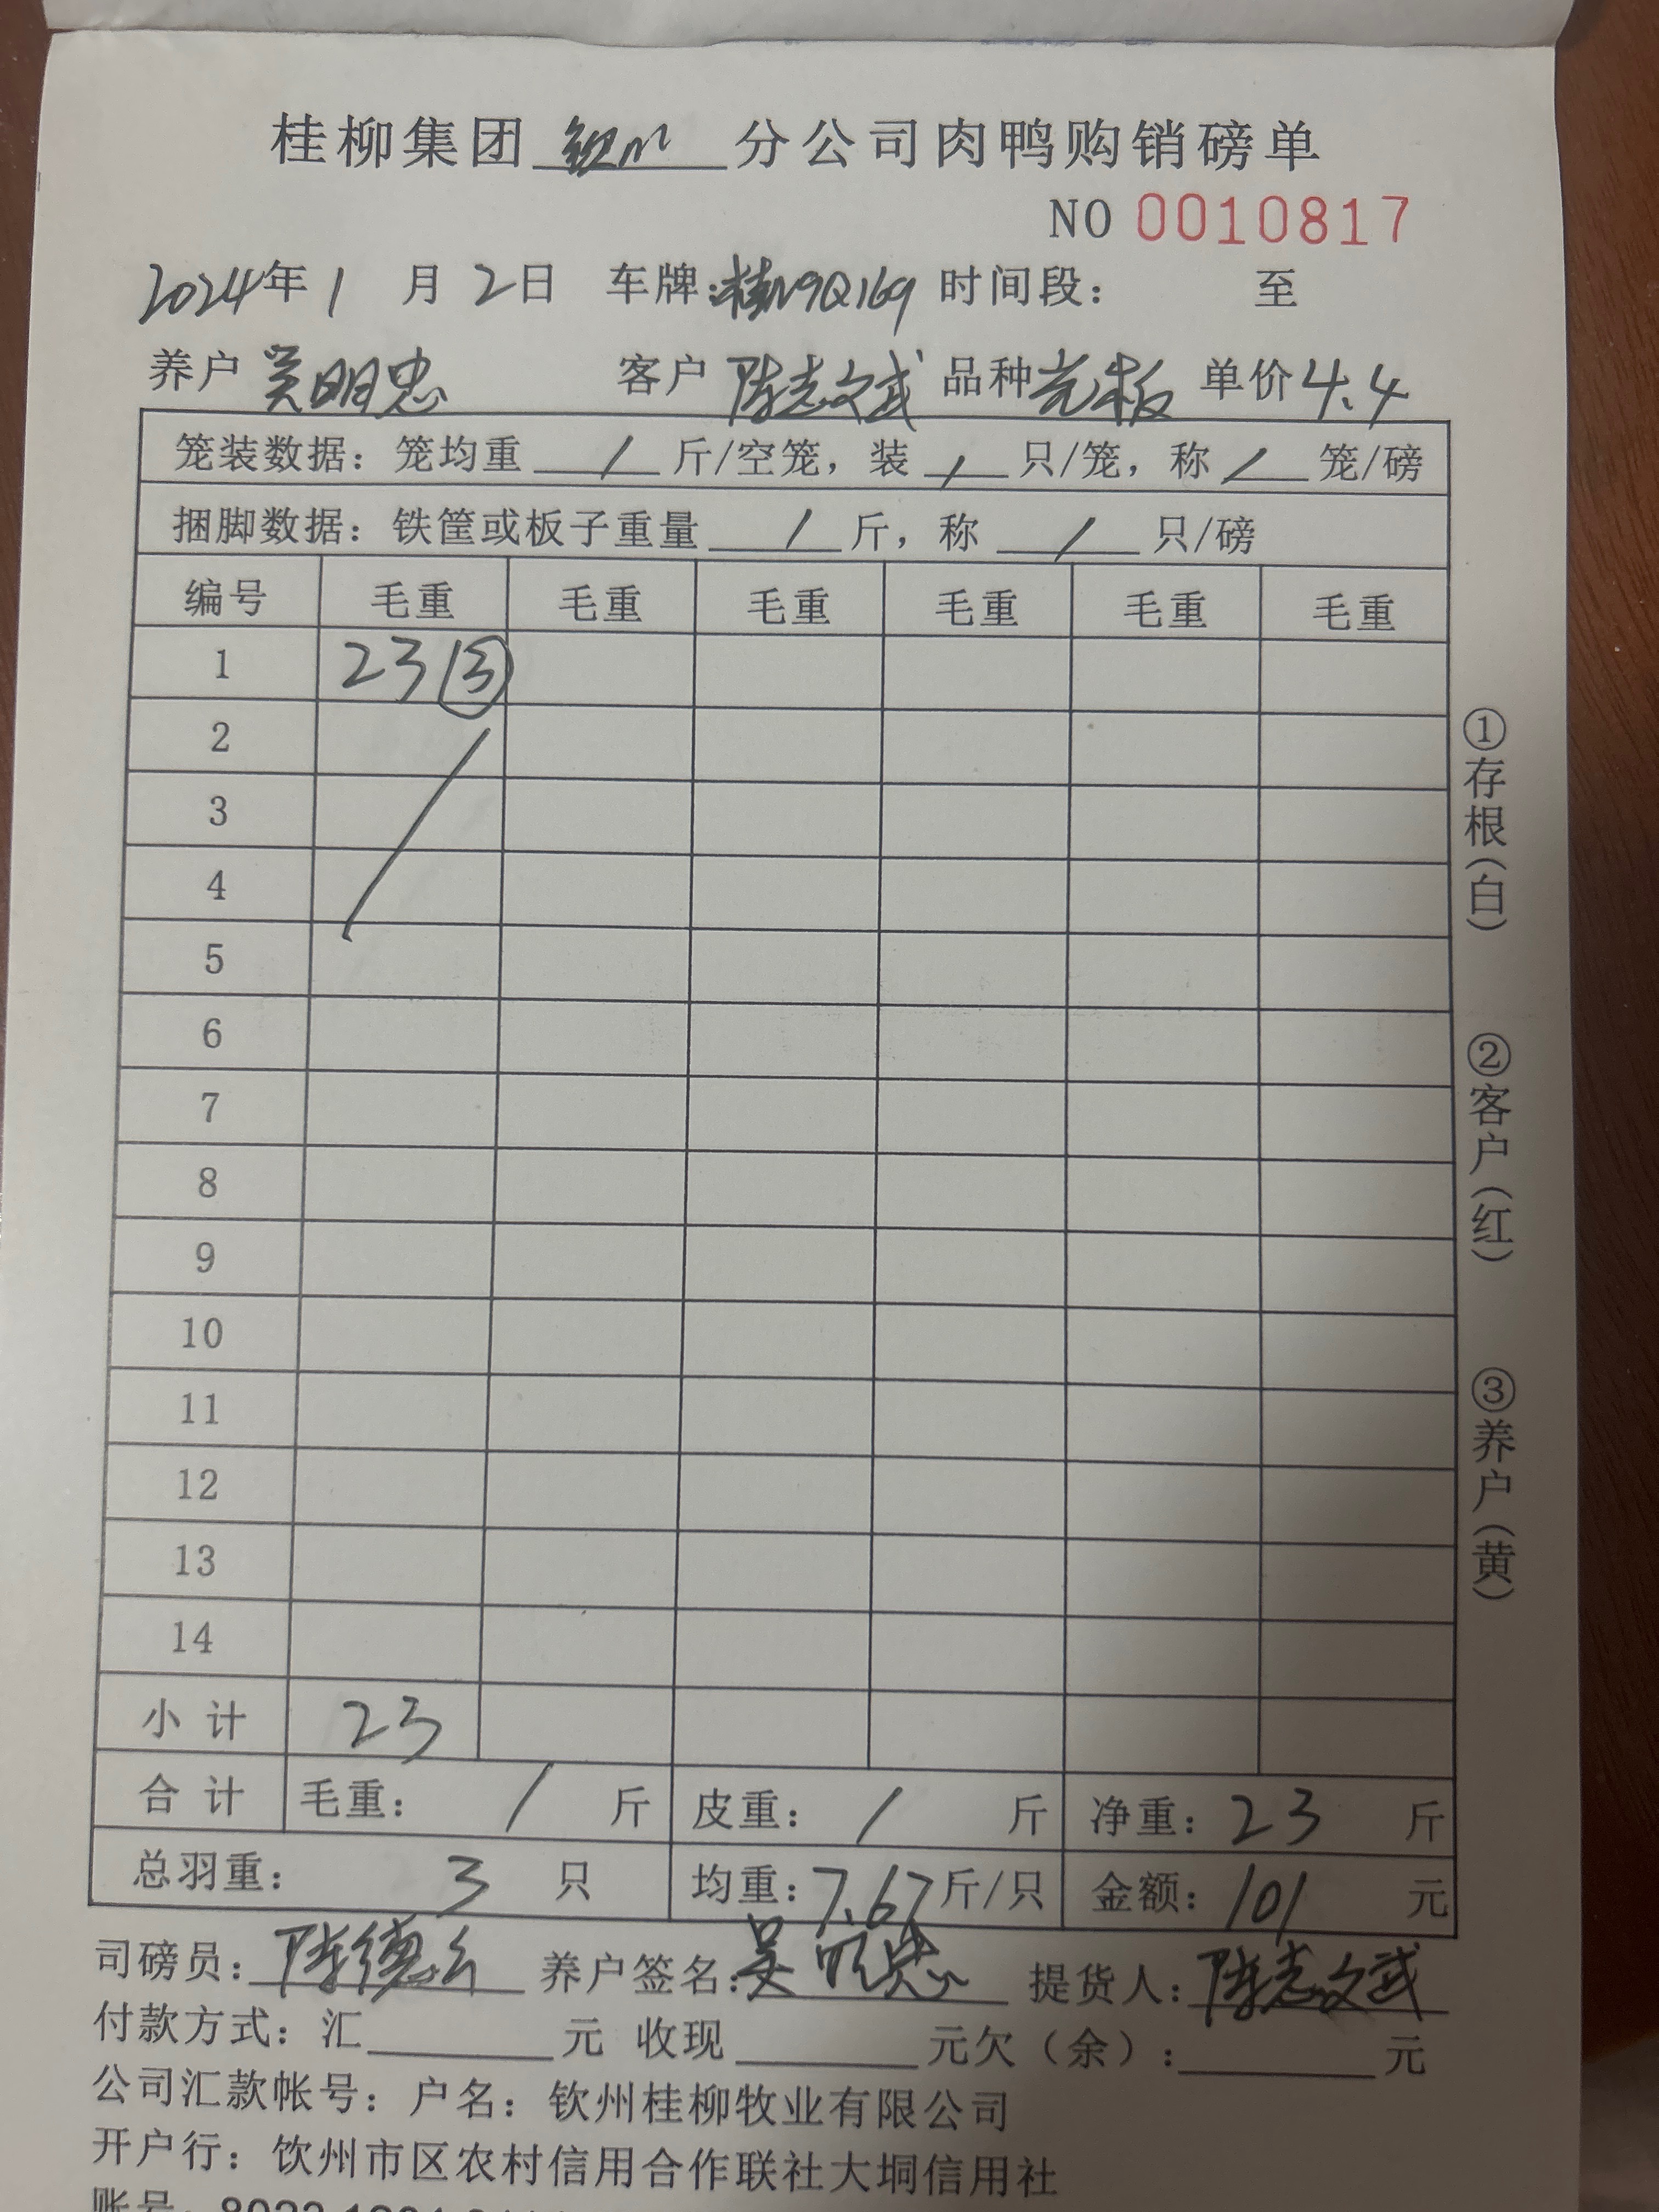 桂柳集团 钦州 分公司肉鸭购销磅单
NO 0010817
2024年1月2日 车牌:桂N9Q169 时间段: 至
养户 吴明忠 客户 陈志斌 品种 光板 单价4.4
笼装数据: 笼均重 / 斤/空笼, 装 / 只/笼, 称 / 笼/磅
捆脚数据: 铁筐或板子重量 / 斤, 称 / 只/磅
编号 毛重 毛重 毛重 毛重 毛重 毛重
1 23 ③
2
3
4
5
6
7
8
9
10
11
12
13
14
小计 23
合计 毛重: / 斤 皮重: / 斤 净重: 23 斤
总羽重: 3 只 均重: 7.67斤/只 金额: 101 元
司磅员: 陈德 养户签名: 吴明忠 提货人: 陈志斌
付款方式: 汇 元 收现 元欠(余): 元
公司汇款帐号: 户名: 钦州桂柳牧业有限公司
开户行: 饮州市区农村信用合作联社大垌信用社
账号:
①存根(白)
②客户(红)
③养户(黄)